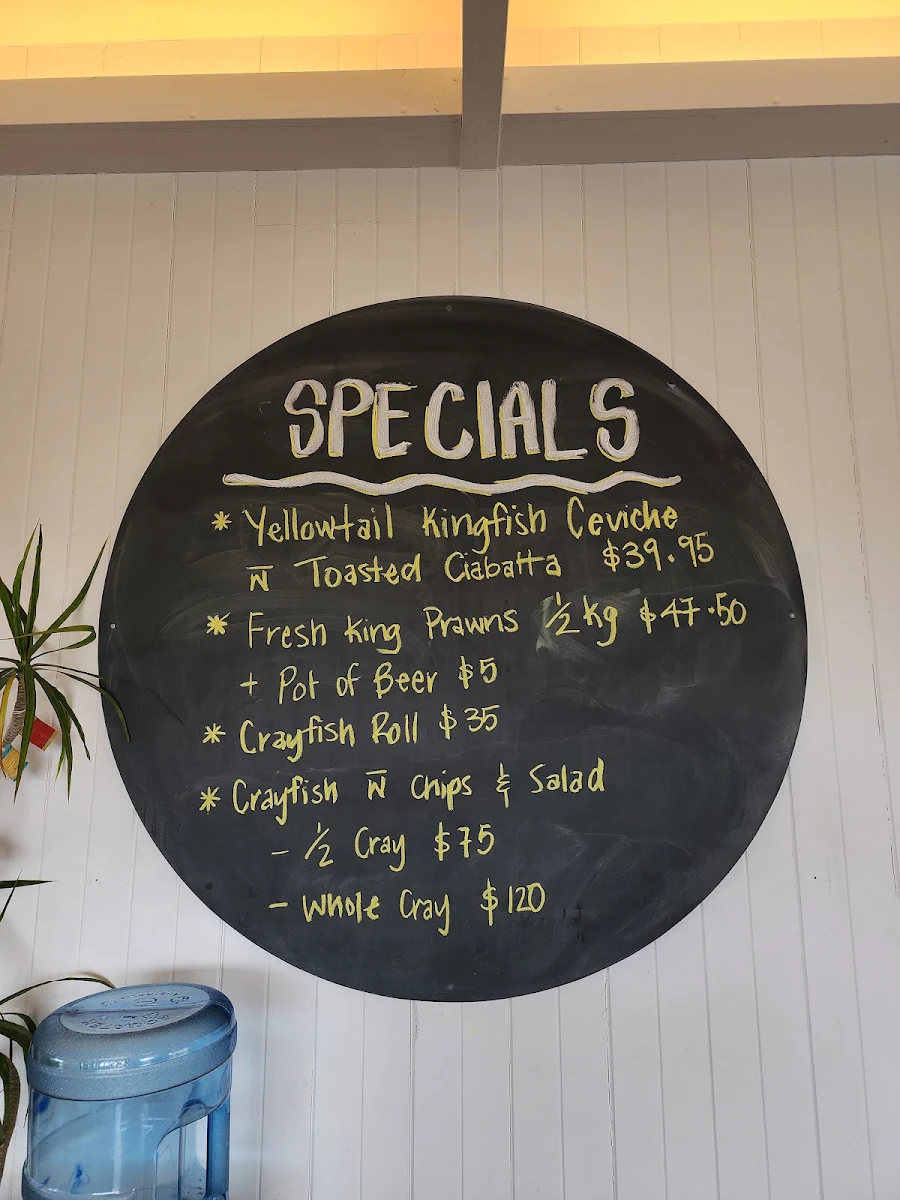 SPECIALS
* Yellowtail Kingfish Ceviche
W̅ Toasted Ciabatta $39.95
* Fresh King Prawns ½ kg $47.50
+ Pot of Beer $5
* Crayfish Roll $35
* Crayfish W̅ Chips & Salad
- ½ Cray $75
- Whole Cray $120